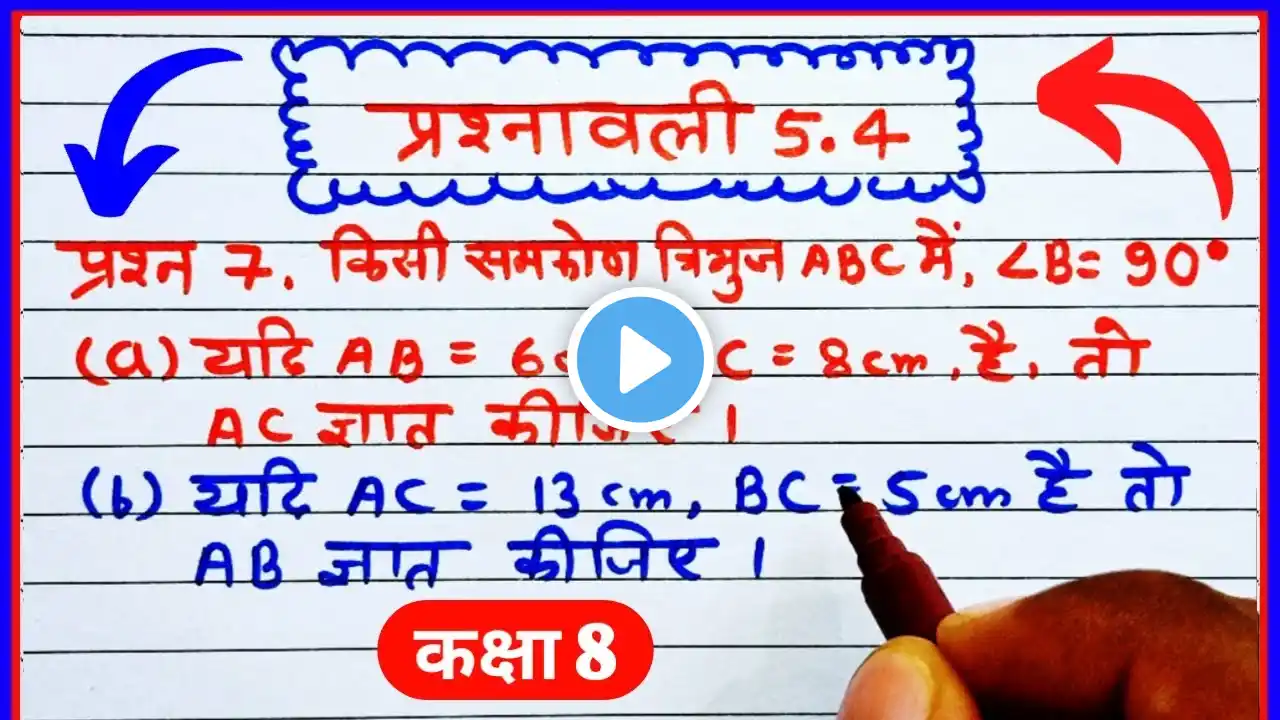 प्रश्नावली 5.4
प्रश्न 7. किसी समकोण त्रिभुज ABC में, ∠B = 90°
(a) यदि AB = 6c C = 8cm, है, तो
AC ज्ञात कीजिए ।
(b) यदि AC = 13 cm, BC = 5 cm है तो
AB ज्ञात कीजिए ।
कक्षा 8